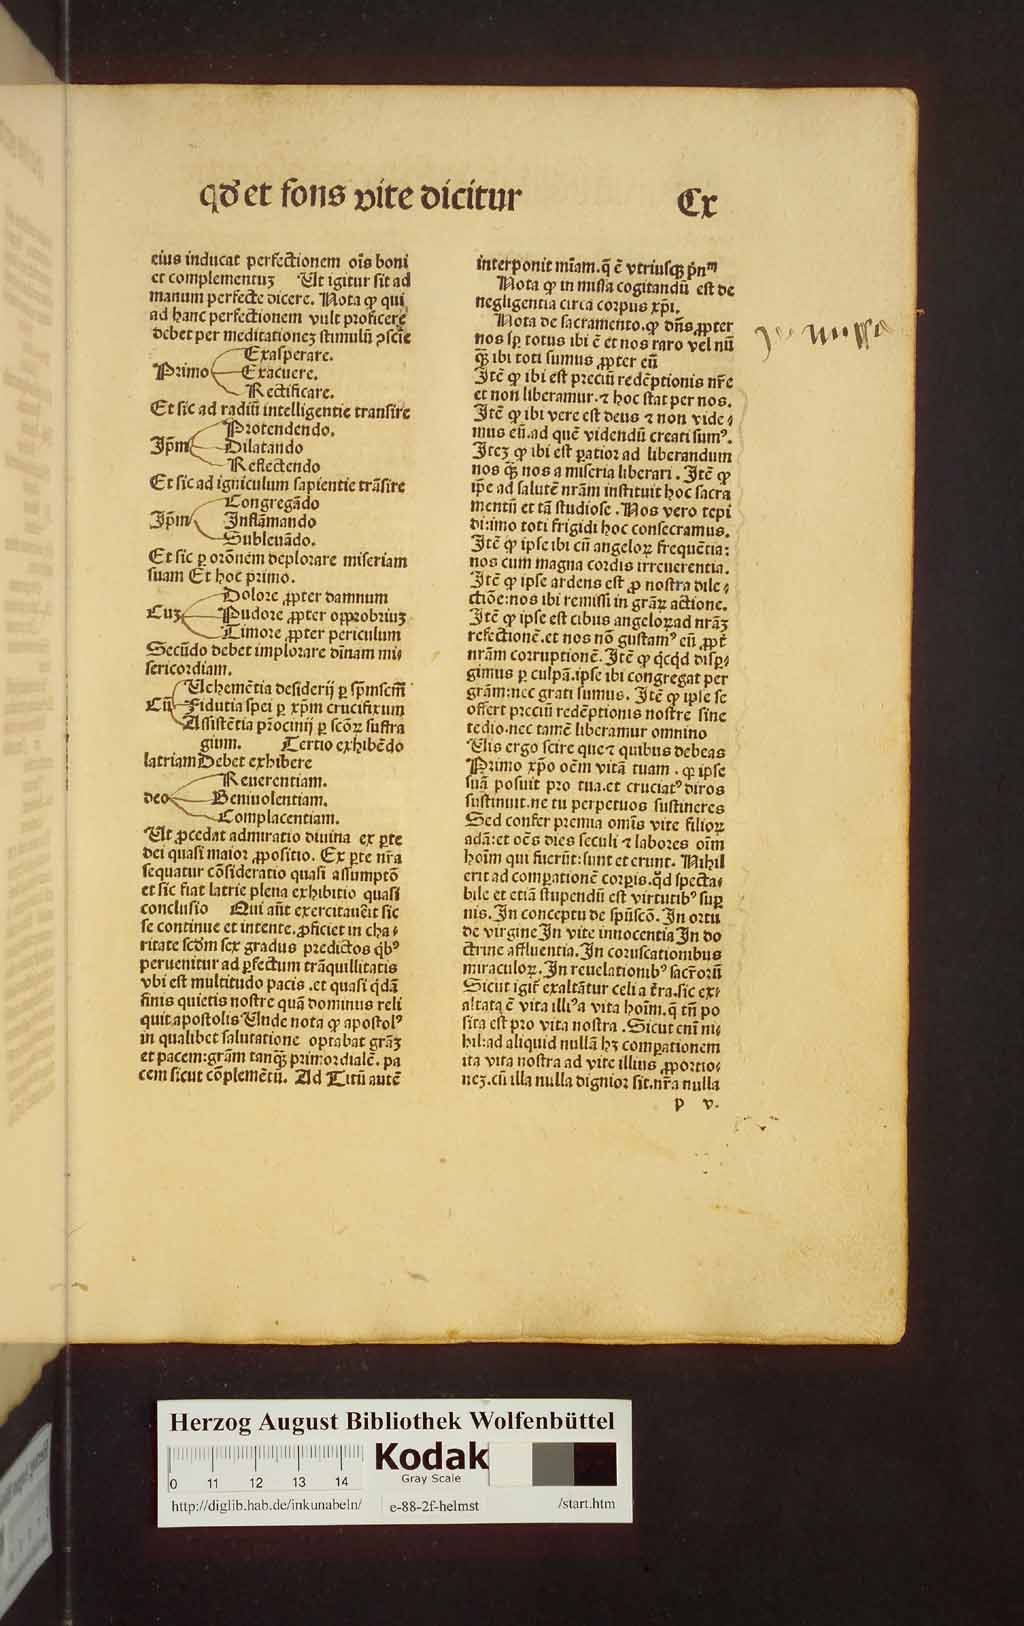 qď et fons vite dicitur
Cx
eius inducat perfectionem oīs boni
et complementuꝫ Ut igitur sit ad
manum perfecte dicere. Nota ꝙ qui
ad hanc perfectionem vult proficere
debet per meditationeꝫ stimulū ꝯscīe
Exasperare.
Primo Exacuere.
Rectificare.
Et sic ad radiū intelligentie transire
Protendendo.
Ip̄m Dilatando
Reflectendo
Et sic ad igniculum sapientie trāsire
Congregādo
Ip̄m Inflāmando
Subleuādo.
Et sic ꝑ orōnem deplorare miseriam
suam Et hoc primo.
Dolore ꝓpter damnum
Cuꝫ Pudore ꝓpter opprobriuꝫ
Timore ꝓpter periculum
Secūdo debet implorare dīnam mi⸗
sericordiam.
Uehemētia desiderij ꝑ sp̄msctm̄
Cū Fidutia spei ꝑ xp̄m crucifixum
Assistētia pr̄ocinij ꝑ scōꝝ suffra
gium. Tertio exhibēdo
latriam Debet exhibere
Reuerentiam.
deo Beniuolentiam.
Complacentiam.
Ut ꝓcedat admiratio diuina ex ꝑte
dei quasi maior ꝓpositio. Ex ꝑte nr̄a
sequatur cōsideratio quasi assumptō
et sic fiat latrie plena exhibitio quasi
conclusio Qui aūt exercitauēit sic
se continue et intente. ꝓficiet in cha⸗
ritate scđm sex gradus predictos qbꝰ
peruenitur ad ꝑfectum trāquillitatis
vbi est multitudo pacis .et quasi qdā
finis quietis nostre quā dominus reli
quit apostolis Unde nota ꝙ apostolꝰ
in qualibet salutatione optabat grāꝫ
et pacem:grām tanꝗ̄ primordialē. pa
cem sicut cōplemētū. Ad Titū autē
interponit mīam.q̄ ē vtriusqꝫ pn̄m
Nota ꝙ in missa cogitandū est de
negligentia circa corpus xp̄i.
Nota de sacramento.ꝙ dn̄s ꝓpter
nos sꝑ totus ibi ē et nos raro vel nū
ꝗ̄ ibi toti sumus ꝓpter eū
Itē ꝙ ibi est preciū redēptionis nr̄e
et non liberamur.⁊ hoc stat per nos.
Itē ꝙ ibi vere est deus ⁊ non vide⸗
mus eū.ad quē videndū creati sumꝰ.
Iteꝫ ꝙ ibi est ꝑatior ad liberandum
nos ꝗ̄ nos a miseria liberari . Itē ꝙ
ip̄e ad salutē nrām instituit hoc sacra
mentū et tā studiose . Nos vero tepi
di:imo toti frigidi hoc consecramus.
Itē ꝙ ipse ibi cū angeloꝝ frequētia:
nos cum magna cordis irreuerentia.
Itē ꝙ ipse ardens est ꝓ nostra dile⸗
ctiōe:nos ibi remissi in grāꝝ actione.
Itē ꝙ ipse est cibus angeloꝝad nrāꝫ
refectionē.et nos nō gustamꝰ eū ꝓpt̄
nrām corruptionē. Itē ꝙ qcqd disꝑ⸗
gimus ꝑ culpā.ipse ibi congregat per
grām:nec grati sumus. Itē ꝙ ipse se
offert preciū redēptionis nostre sine
tedio.nec tamē liberamur omnino
Uis ergo scire que⁊ quibus debeas
Primo xp̄o oēm vitā tuam . ꝙ ipse
suā posuit pro tua.et cruciatꝰ diros
sustinuit.ne tu perpetuos sustineres
Sed confer premia omīs vite filioꝝ
adā:et oēs dies seculi ⁊ labores oīm
hoīm qui fuerūt:sunt et crunt. Nihil
erit ad comꝑationē corꝑis.qđ specta⸗
bile et etiā stupendū est virtutibꝰ suꝑ
nis. In conceptu de spūscō. In ortu
de virgine In vite innocentia In do
ctrine affluentia. In coruscationibus
miraculoꝝ. In reuelationibꝰ sacr̄orū
Sicut igit̄ exaltātur celi a t̄ra.sic ex⸗
altata ē vita illiꝰa vita hoīm.q̄ tn̄ po
sita est pro vita nostra . Sicut enī ni⸗
hil:ad aliquid nullā hꝫ comꝑationem
ita vita nostra ad vite illius ꝓportio⸗
neꝫ.cū illa nulla dignior sit.nr̄a nulla
p v.
Herzog August Bibliothek Wolfenbüttel
Kodak
Gray Scale
0 11 12 13 14
http://diglib.hab.de/inkunabeln/ e-88-2f-helmst /start.htm